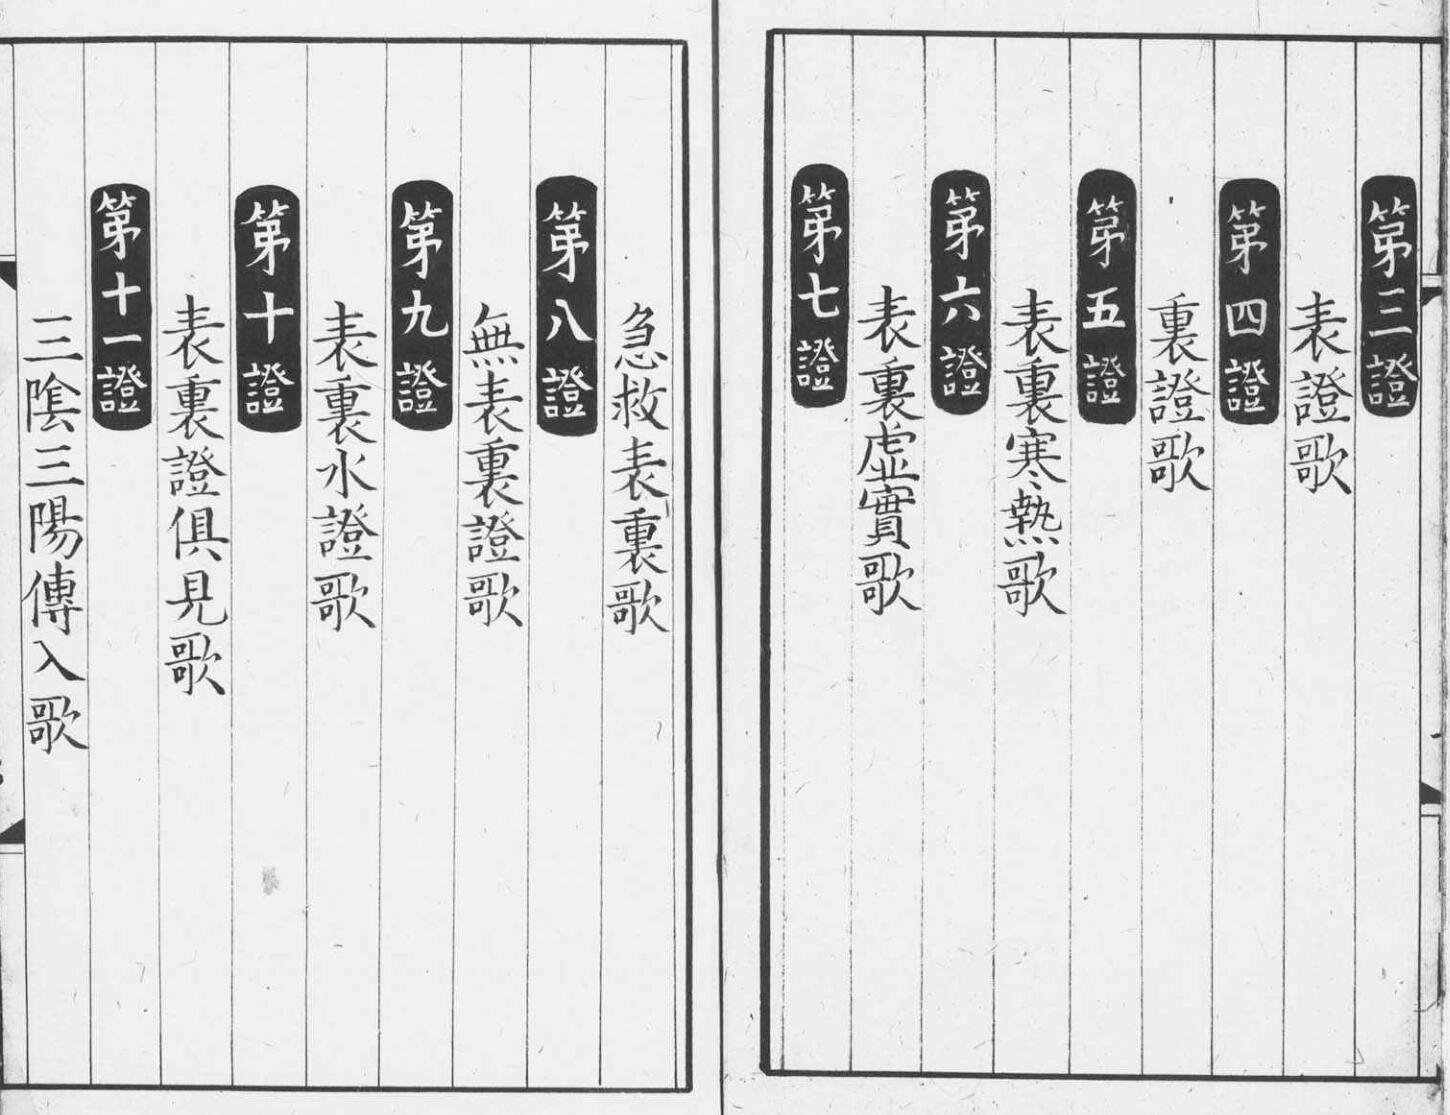 第三證
表證歌
第四證
裏證歌
第五證
表裏寒熱歌
第六證
表裏虛實歌
第七證
急救表裏歌
第八證
無表裏證歌
第九證
表裏水證歌
第十證
表裏證俱見歌
第十一證
三陰三陽傳入歌